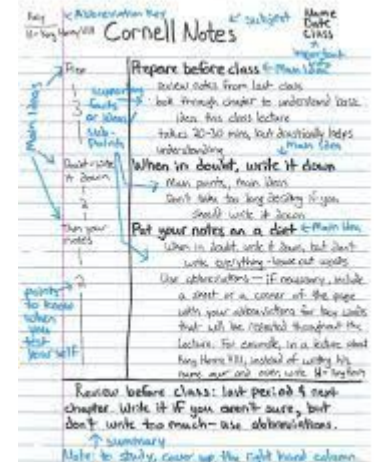 Key
← Abbreviation Key
H = King Henry VIII
Cornell Notes
← subject
Name
Date
Class
↑
important
info
Main Ideas
Prep
1
2
3
supporting
facts
or ideas
sub-
Points
Prepare before class ← Main Idea
review notes from last class
look through chapter to understand basic
idea this class lecture
takes 20-30 mins, but drastically helps
understanding
↓ Main Idea
Doubt-write
it down
1
2
When in doubt, write it down
Main points, main ideas
Don't take too long deciding if you
should write it down
Thin your
notes
1
2
Put your notes on a diet ← Main Idea
When in doubt, write it down, but don't
write everything - leave out words
Use abbreviations - if necessary, include
a sheet or a corner of the page
with your abbreviations for key words
that will be repeated throughout the
lecture. For example, in a lecture about
King Henry VIII, instead of writing his
name over and over, write H = King Henry
points
to know
when
you
test
yourself
Review before class: last period & next
chapter. Write it if you aren't sure, but
don't write too much - use abbreviations.
↑ summary
Note: to study, cover up the right hand column